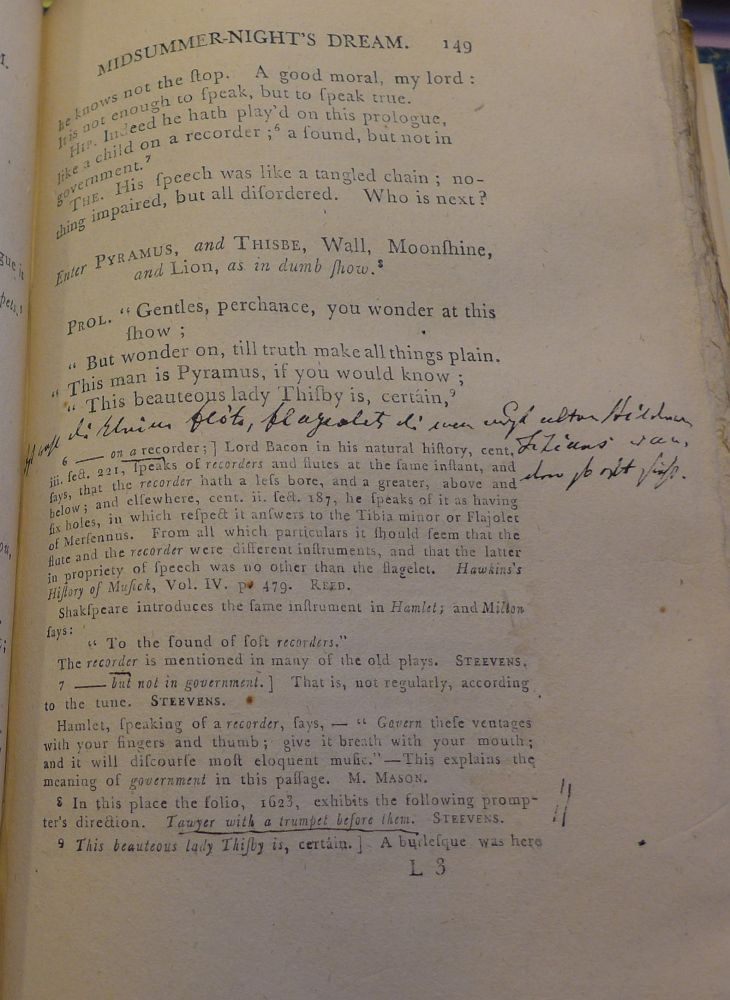 MIDSUMMER-NIGHT'S DREAM. 149
he knows not the ſtop. A good moral, my lord :
It is not enough to ſpeak, but to ſpeak true.
HIP. Indeed he hath play'd on this prologue,
like a child on a recorder ;⁶ a ſound, but not in
government.⁷
THE. His ſpeech was like a tangled chain ; no-
thing impaired, but all diſordered. Who is next?
Enter PYRAMUS, and THISBE, Wall, Moonſhine,
and Lion, as in dumb ſhow.⁸
PROL. “ Gentles, perchance, you wonder at this
ſhow ;
“ But wonder on, till truth make all things plain.
“ This man is Pyramus, if you would know ;
“ This beauteous lady Thiſby is, certáin,⁹
6 —— on a recorder;] Lord Bacon in his natural hiſtory, cent.
iii. ſect. 221, ſpeaks of recorders and flutes at the ſame inſtant, and
ſays, that the recorder hath a leſs bore, and a greater, above and
below ; and elſewhere, cent. ii. ſect. 187, he ſpeaks of it as having
ſix holes, in which reſpect it anſwers to the Tibia minor or Flajolet
of Merſennus. From all which particulars it ſhould ſeem that the
flute and the recorder were different inſtruments, and that the latter
in propriety of ſpeech was no other than the flagelet. Hawkins's
Hiſtory of Muſick, Vol. IV. p. 479. REED.
Shakſpeare introduces the ſame inſtrument in Hamlet; and Milton
ſays:
“ To the ſound of ſoft recorders.”
The recorder is mentioned in many of the old plays. STEEVENS.
7 —— but not in government.] That is, not regularly, according
to the tune. STEEVENS.
Hamlet, ſpeaking of a recorder, ſays, — “ Govern theſe ventages
with your fingers and thumb ; give it breath with your mouth ;
and it will diſcourſe moſt eloquent muſic.”—This explains the
meaning of government in this paſſage. M. MASON.
8 In this place the folio, 1623, exhibits the following promp-
ter's direction. Tawyer with a trumpet before them. STEEVENS.
9 This beauteous lady Thiſby is, certáin.] A burleſque was here
L 3